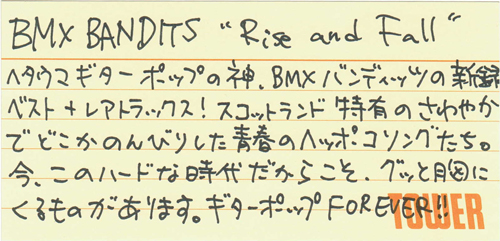 BMX BANDITS "Rise and Fall"
ヘタウマギターポップの神、BMXバンディッツの新録
ベスト+レアトラックス！スコットランド特有のさわやか
でどこかのんびりした青春のヘッポコソングたち。
今、このハードな時代だからこそ、グッと胸に
くるものがあります。ギターポップFOREVER!!
TOWER